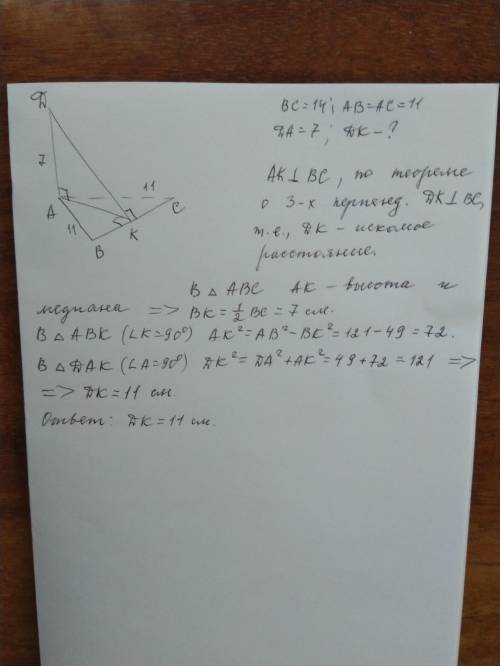 BC=14; AB=AC=11
DA=7; DK-?
AK⊥BC, по теореме
о 3-х перпенд. DK⊥BC,
т.е., DK - искомое
расстояние.
D
7
A
11
11
B
K
C
В △ ABC AK - высота и
медиана => BK=1/2 BC=7 см.
В △ ABK (∠K=90°) AK²=AB²-BK²=121-49=72.
В △ DAK (∠A=90°) DK²=DA²+AK²=49+72=121 =>
=> DK=11 см.
Ответ: DK=11 см.